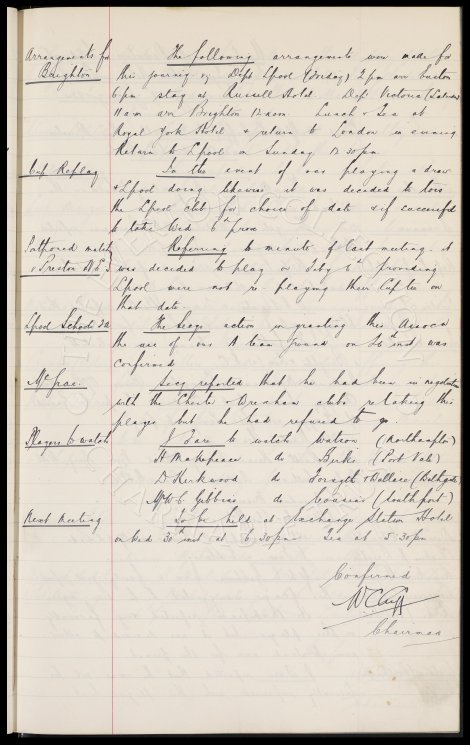 Arrangements for Brighton
The following arrangements were made for
this journey vz Dept Lpool (Friday) 2pm arr Euston
6pm stay at Russell Hotel. Dept Victoria (Saturday)
11am arr Brighton 12 noon. Lunch & Tea at
Royal York Hotel & return to London in evening
Return to Lpool on Sunday 12.30pm
Cup Replay
In the event of our playing a draw
& Lpool doing likewise it was decided to toss
the Lpool club for choice of date & if successful
to take Wed 6th prox
Postponed match v Preston N.E.
Referring to minute of last meeting. it
was decided to play on Feby 6th providing
Lpool were not replaying their Cup tie on
that date.
Lpool Schools
The Secys action in granting this Assocn
the use of our A team ground on 26th inst was
confirmed
McGrae.
Secy reported that he had been in negotiation
with the Chester & Wrexham clubs relating this
player but he had refused to go.
Players to watch
J Tare to watch Watson (Northampton)
H Makepeace do Berks (Port Vale)
D Kirkwood do Forsyth & Wallace (Bathgate)
Mr W.C. Gibbins do Cousins (Southport)
Next Meeting
To be held at Exchange Station Hotel
on Wed 30th inst at 6.30pm Tea at 5.30pm
Confirmed
W.C. Cuff
Chairman